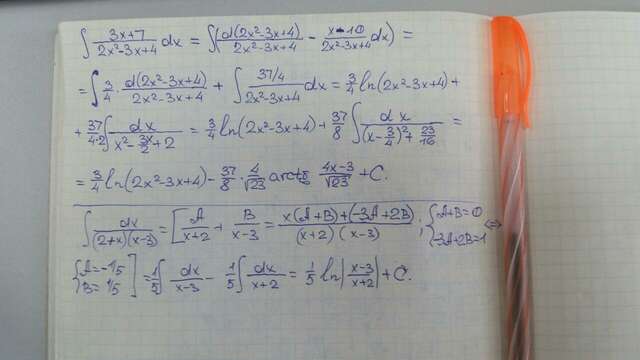 ∫ (3x+7)/(2x²-3x+4) dx = ∫(d(2x²-3x+4)/(2x²-3x+4) - (x-10)/(2x²-3x+4) dx) =
= ∫ 3/4 · d(2x²-3x+4)/(2x²-3x+4) + ∫ (37/4)/(2x²-3x+4) dx = 3/4 ln(2x²-3x+4) +
+ 37/(4·2) ∫ dx/(x² - 3x/2 + 2) = 3/4 ln(2x²-3x+4) + 37/8 ∫ dx/((x-3/4)² + 23/16) =
= 3/4 ln(2x²-3x+4) - 37/8 · 4/√23 arctg (4x-3)/√23 + C.
∫ dx/((2+x)(x-3)) = [A/(x+2) + B/(x-3) = (x(A+B)+(-3A+2B))/((x+2)(x-3)) ; {A+B=0 -3A+2B=1 ⇔
{A=-1/5 B=1/5] = 1/5 ∫ dx/(x-3) - 1/5 ∫ dx/(x+2) = 1/5 ln|(x-3)/(x+2)| + C.